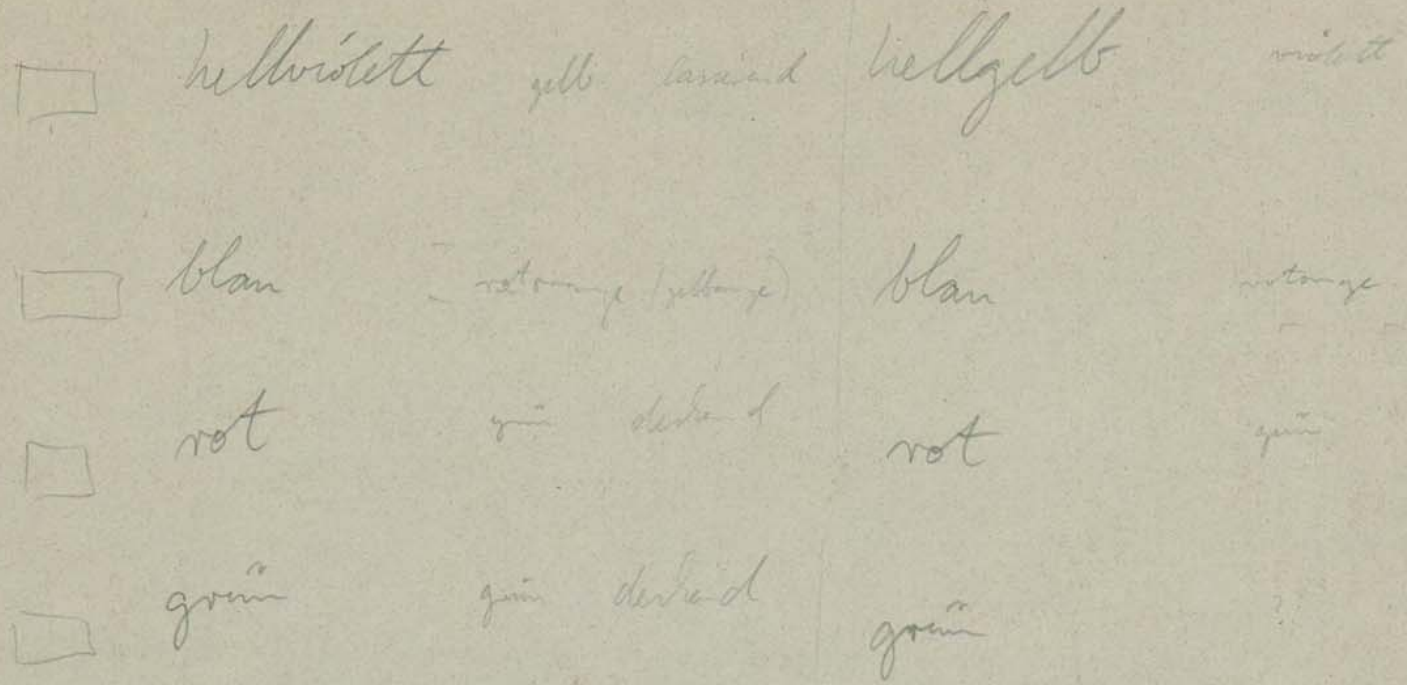 hellviolett gelb lasierend hellgelb violett
blau rotorange (gelborange) blau rotorange
rot grün deckend rot grün
grün grün deckend grün ?